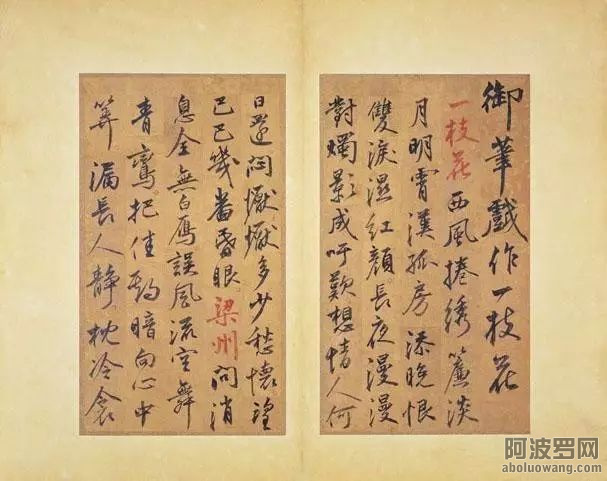 御筆戲作一枝花
一枝花西風捲綉簾淡
月明霄漢孤房添晚恨
雙淚濕紅顏長夜漫漫
對燭影成吁歎想情人何
日還悶懨懨多少愁懷望
巴巴幾番昏眼梁州問消
息全無白雁誤風流空舞
青鸞把佳期暗向心中
筭漏長人靜枕冷衾
阿波罗网
aboluowang.com